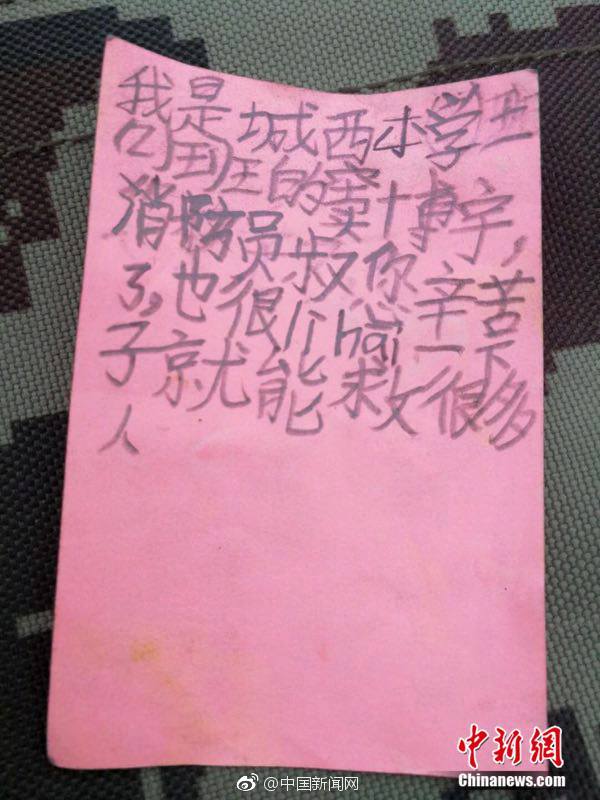 我是城西小学二
(1)班的窦博宇,
消防员叔你辛苦
了,也很 hai 一下
子就能救很多
人
@中国新闻网
中新網
Chinanews.com